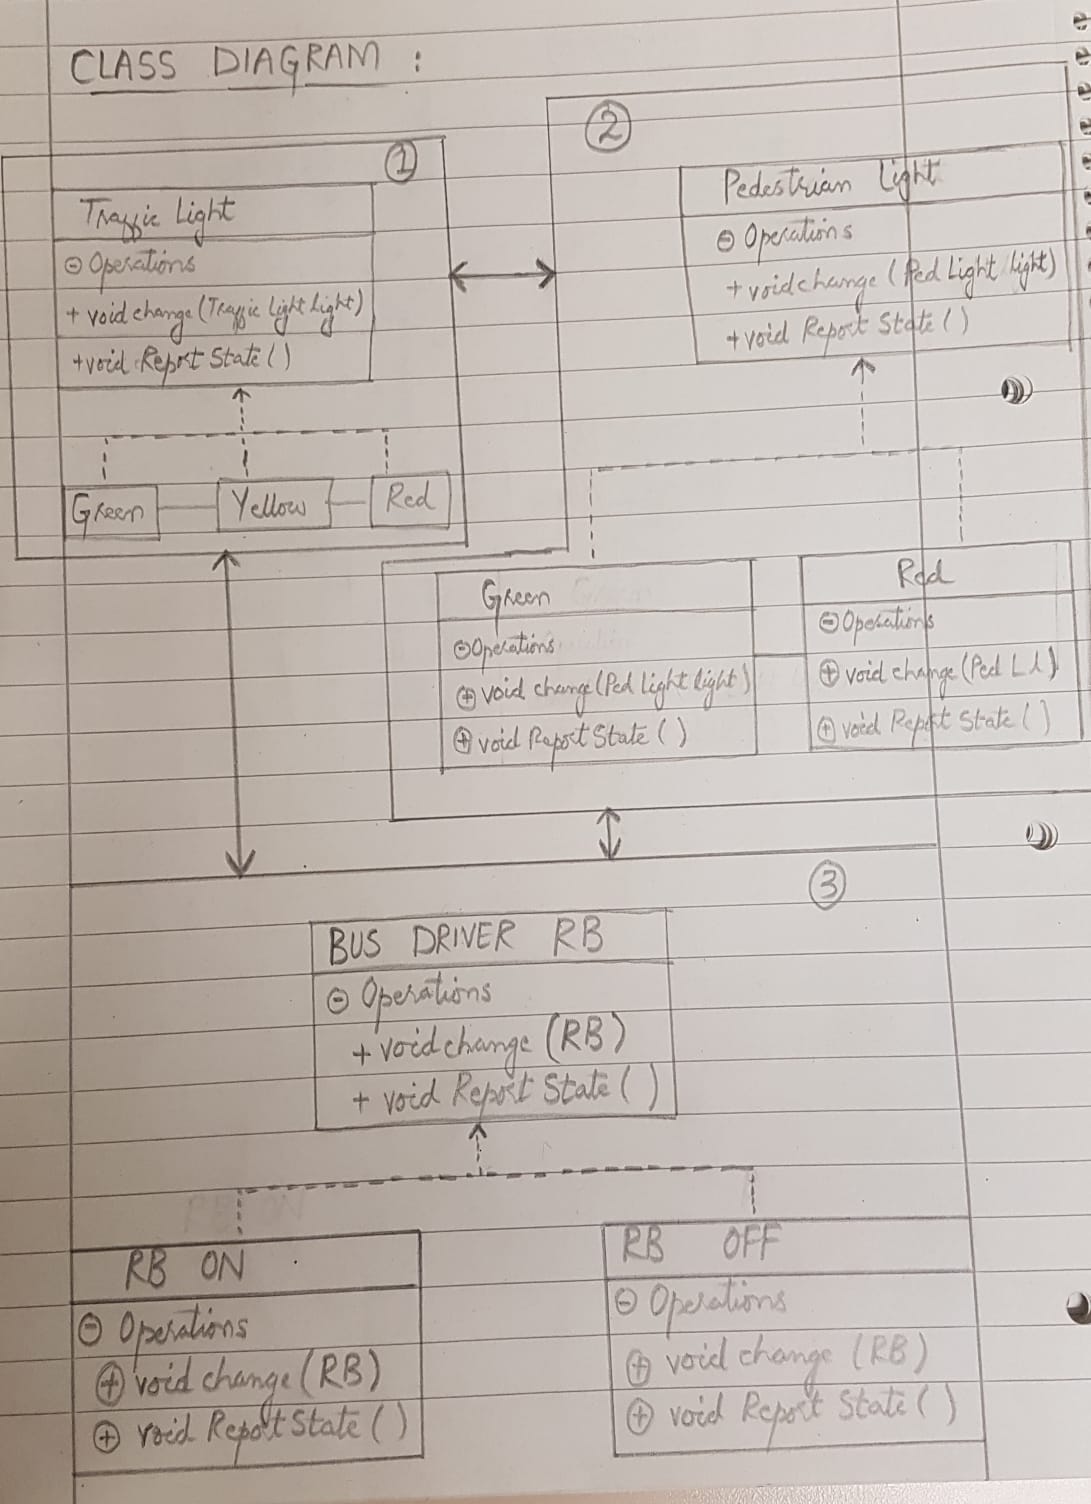 CLASS DIAGRAM :
①
Traffic Light
⊖ Operations
+ void change (Traffic Light Light)
+ void Report State ( )
Green
Yellow
Red
②
Pedestrian Light
⊖ Operations
+ void change (Ped Light Light)
+ void Report State ( )
Green
⊖ Operations
⊕ void change (Ped Light Light)
⊕ void Report State ( )
Red
⊖ Operations
⊕ void change (Ped L L)
⊕ void Report State ( )
③
BUS DRIVER RB
⊖ Operations
+ void change (RB)
+ void Report State ( )
RB ON
⊖ Operations
⊕ void change (RB)
⊕ void Report State ( )
RB OFF
⊖ Operations
⊕ void change (RB)
⊕ void Report State ( )